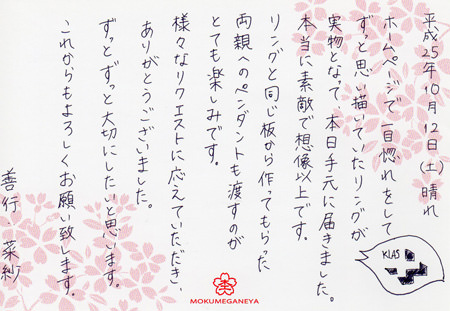 平成25年10月12日(土) 晴れ
ホームページで一目惚れをして
ずっと思い描いていたリングが
実物となって、本日手元に届きました。
本当に素敵で想像以上です。
リングと同じ板から作ってもらった
両親へのペンダントも渡すのが
とても楽しみです。
様々なリクエストに応えていただき、
ありがとうございました。
ずっとずっと大切にしたいと思います。
これからもよろしくお願い致します。
善行・菜紗
KLAS
MOKUMEGANEYA